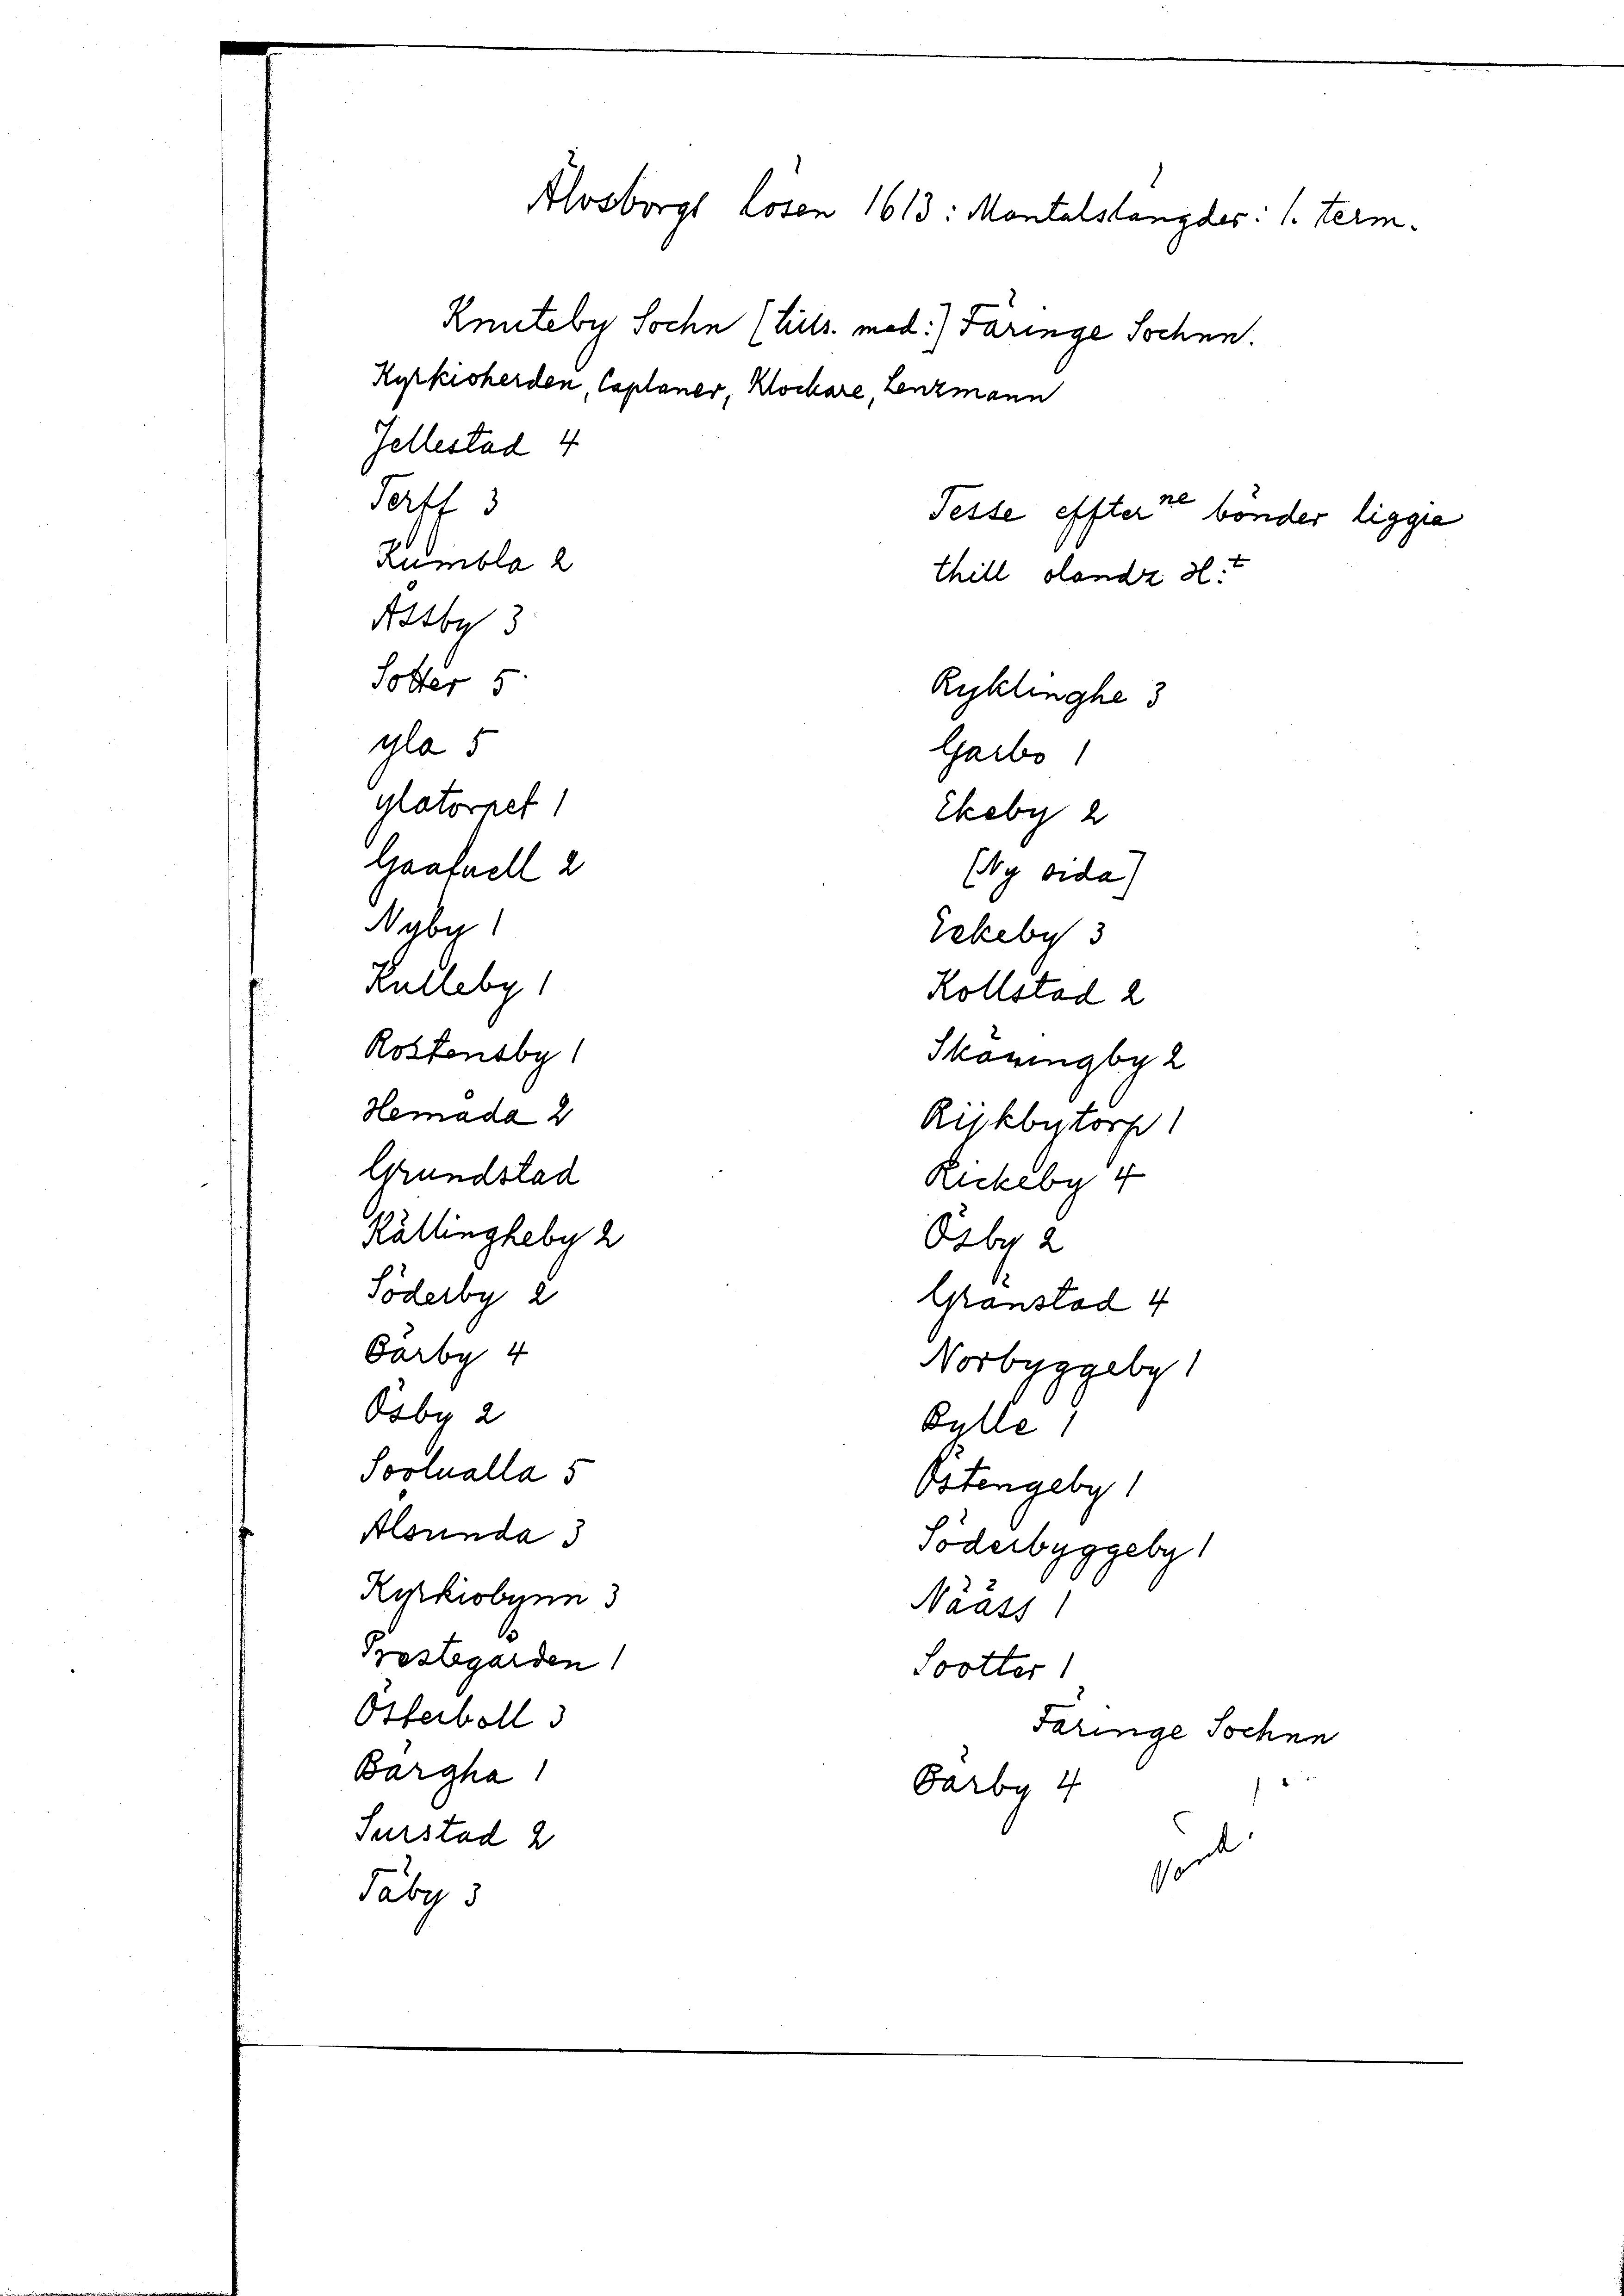 Älvsborgs lösen 1613: Mantalslängder: 1. term.
Knuteby Sochn (tills. med:) Färinge Sochnn.
Kyrkioherden, Caplaner, Klockare, Lenzmann
Jellestad 4
Terff 3
Kumbla 2
Åssby 3
Sotter 5
yla 5
ylatorpet 1
Gaafuell 2
Nyby 1
Kulleby 1
Rostensby 1
Hemåda 2
Grundstad
Källingheby 2
Söderby 2
Bärby 4
Ösby 2
Soolualla 5
Alsunda 3
Kyrkiobynn 3
Prestegården 1
Österboll 3
Bärgha 1
Surstad 2
Täby 3
Tesse effter ne bönder liggia
thill olandz H:t
Ryklinghe 3
Garbo 1
Ekeby 2
[Ny sida]
Eekeby 3
Kollstad 2
Skäningby 2
Rijkbytorp 1
Rickeby 4
Ösby 2
Gränstad 4
Norbyggeby 1
Bylle 1
Östengeby 1
Söderbyggeby 1
Nääss 1
Sootter 1
Färinge Sochnn
Bärby 4